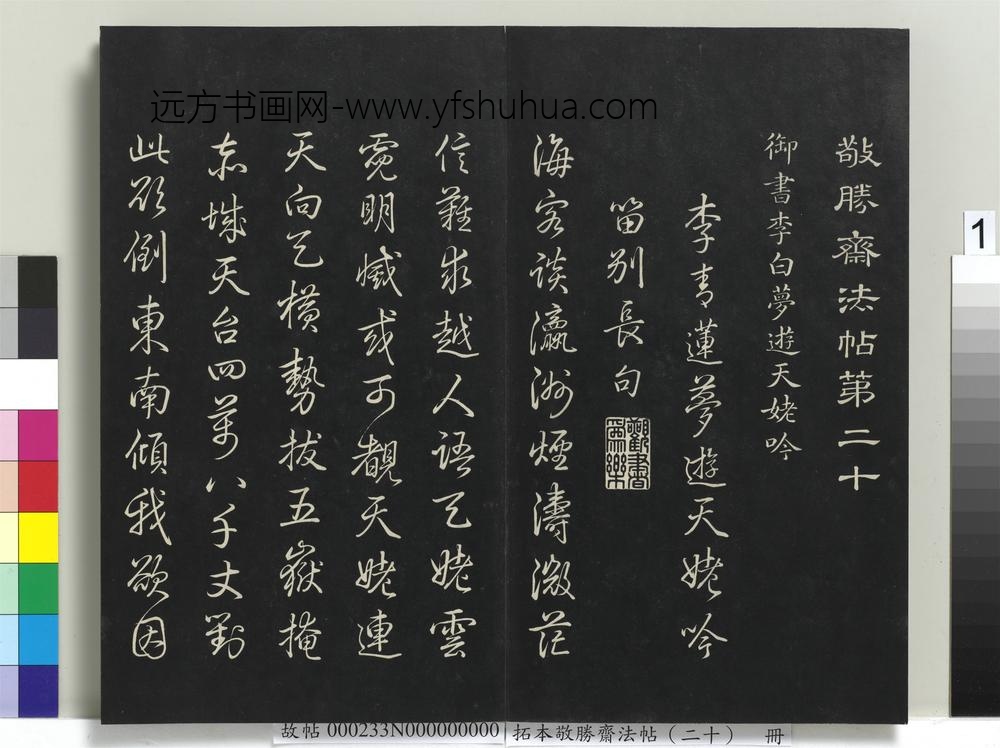 远方书画网-www.yfshuhua.com
敬勝齋法帖第二十
御書李白夢遊天姥吟
李青蓮夢遊天姥吟
留別長句
觀書為樂
海客談瀛洲煙濤微茫
信難求越人語天姥雲
霓明滅或可覩天姥連
天向天橫勢拔五嶽掩
赤城天台四萬八千丈對
此欲倒東南傾我欲因
1
故帖 000233N000000000 拓本敬勝齋法帖（二十） 冊